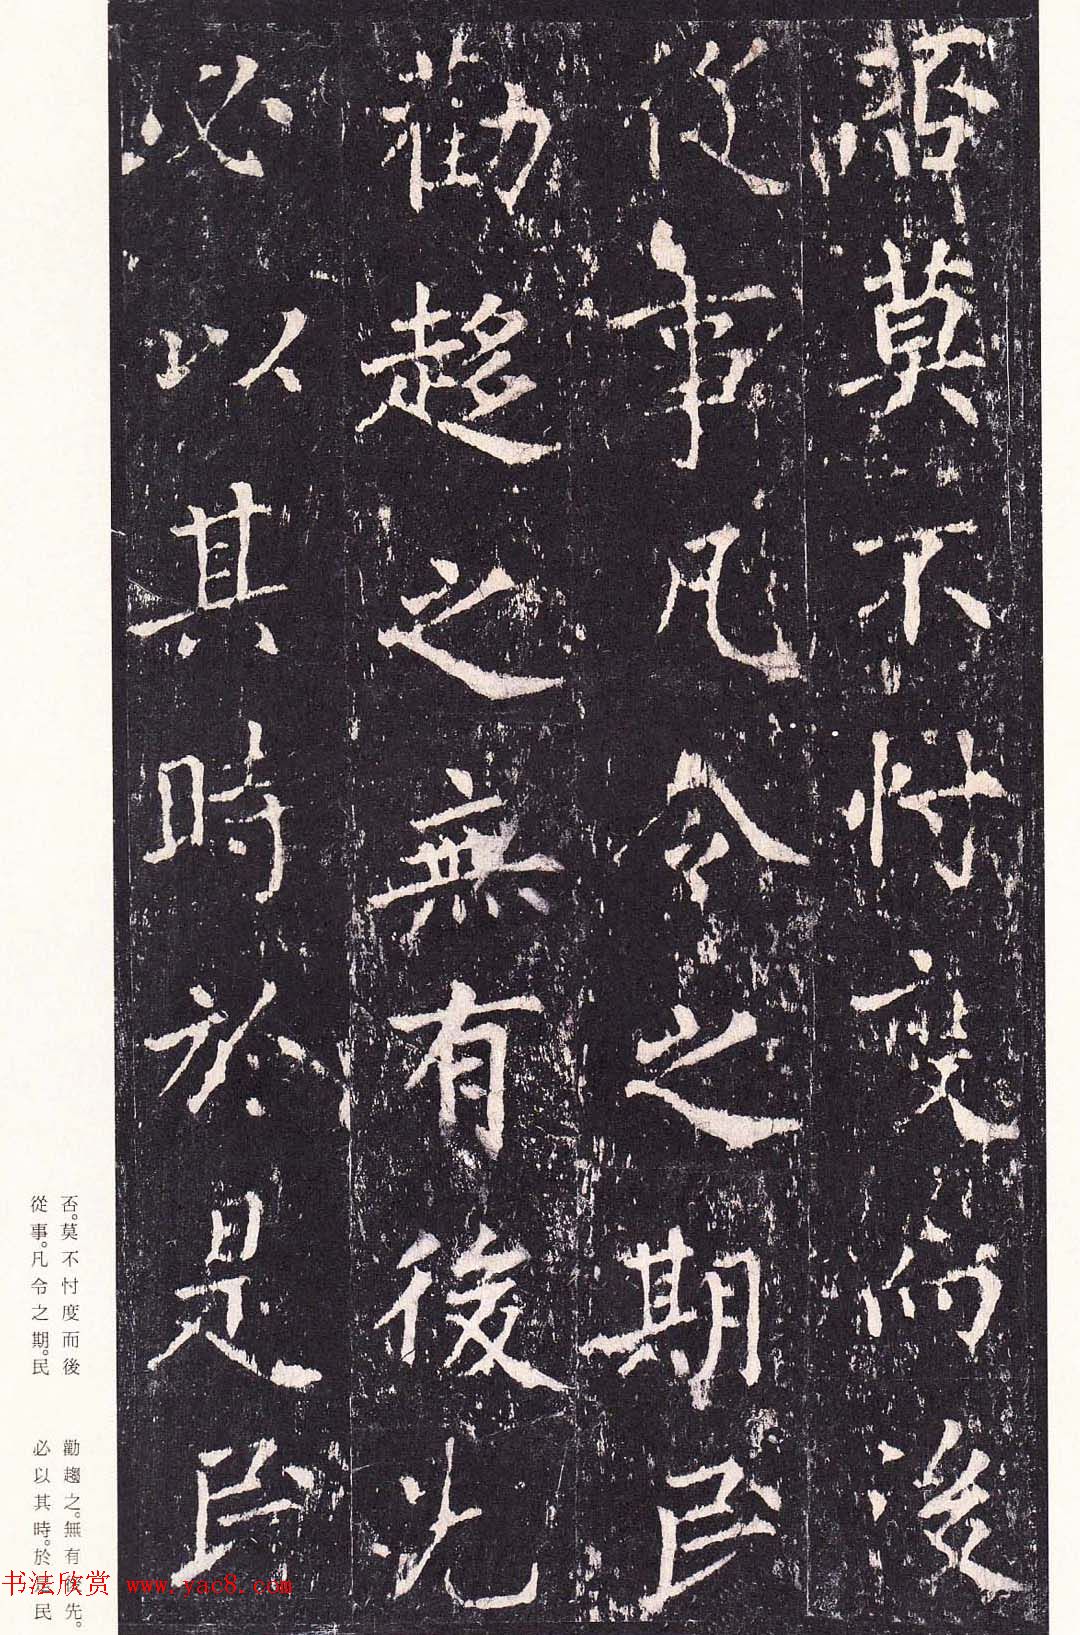 否莫不忖度而後
從事凡令之期民
勸趨之無有後先
必以其時於是民
否。莫不忖度而後
從事。凡令之期。民
勸趨之。無有後先。
必以其時。於是民
书法欣赏 www.yac8.com